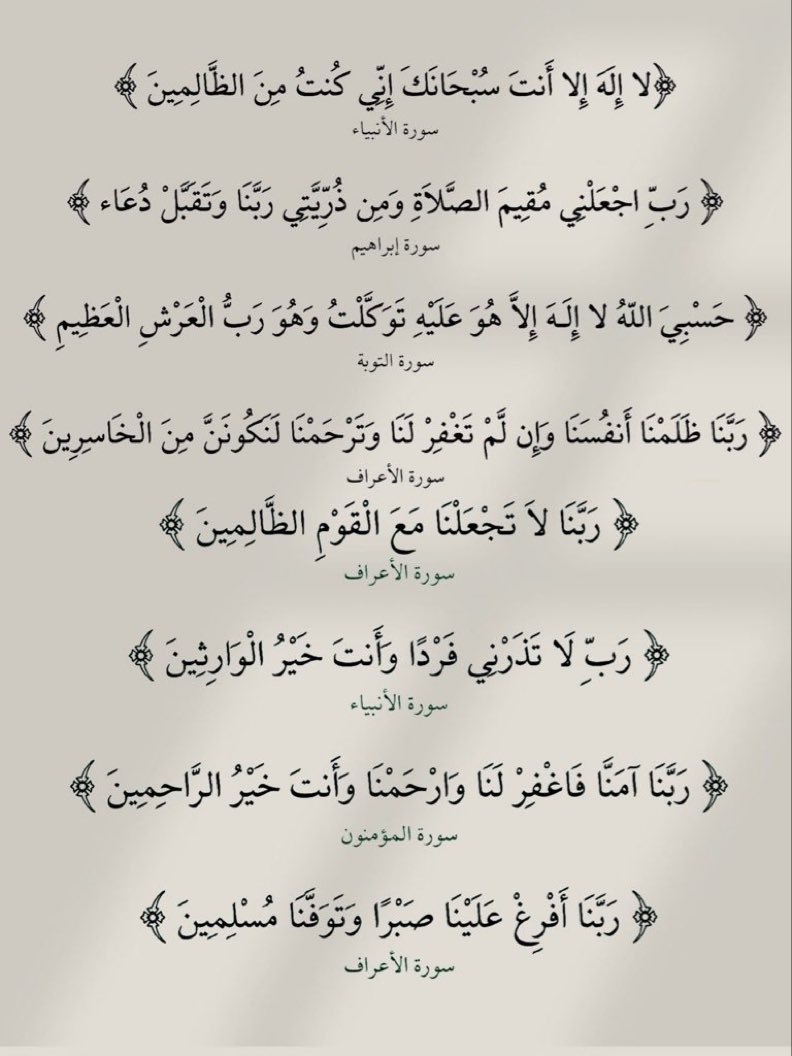 ﴿لا إِلَهَ إِلا أَنتَ سُبْحَانَكَ إِنِّي كُنتُ مِنَ الظَّالِمِينَ ﴾
سورة الأنبياء
﴿ رَبِّ اجْعَلْنِي مُقِيمَ الصَّلاَةِ وَمِن ذُرِّيَّتِي رَبَّنَا وَتَقَبَّلْ دُعَاء ﴾
سورة إبراهيم
﴿ حَسْبِيَ اللّهُ لا إِلَـهَ إِلاَّ هُوَ عَلَيْهِ تَوَكَّلْتُ وَهُوَ رَبُّ الْعَرْشِ الْعَظِيمِ ﴾
سورة التوبة
﴿ رَبَّنَا ظَلَمْنَا أَنفُسَنَا وَإِن لَّمْ تَغْفِرْ لَنَا وَتَرْحَمْنَا لَنَكُونَنَّ مِنَ الْخَاسِرِينَ ﴾
سورة الأعراف
﴿ رَبَّنَا لاَ تَجْعَلْنَا مَعَ الْقَوْمِ الظَّالِمِينَ ﴾
سورة الأعراف
﴿ رَبِّ لَا تَذَرْنِي فَرْدًا وَأَنتَ خَيْرُ الْوَارِثِينَ ﴾
سورة الأنبياء
﴿ رَبَّنَا آمَنَّا فَاغْفِرْ لَنَا وَارْحَمْنَا وَأَنتَ خَيْرُ الرَّاحِمِينَ ﴾
سورة المؤمنون
﴿ رَبَّنَا أَفْرِغْ عَلَيْنَا صَبْرًا وَتَوَفَّنَا مُسْلِمِينَ ﴾
سورة الأعراف